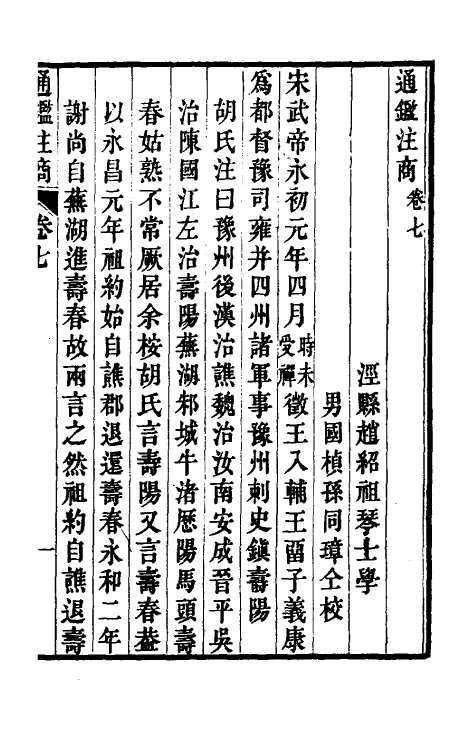 通鑑注商卷七
涇縣趙紹祖琴士學
男國楨孫同璋仝校
宋武帝永初元年四月時未受禪徵王入輔王畱子義康
爲都督豫司雍并四州諸軍事豫州刺史鎭壽陽
胡氏注曰豫州後漢治譙魏治汝南安成晉平吳
治陳國江左治壽陽蕪湖邾城牛渚歷陽馬頭壽
春姑熟不常厥居余桉胡氏言壽陽又言壽春葢
以永昌元年祖約始自譙郡退還壽春永和二年
謝尚自蕪湖進壽春故兩言之然祖約自譙退壽
通鑑注商
卷七
一